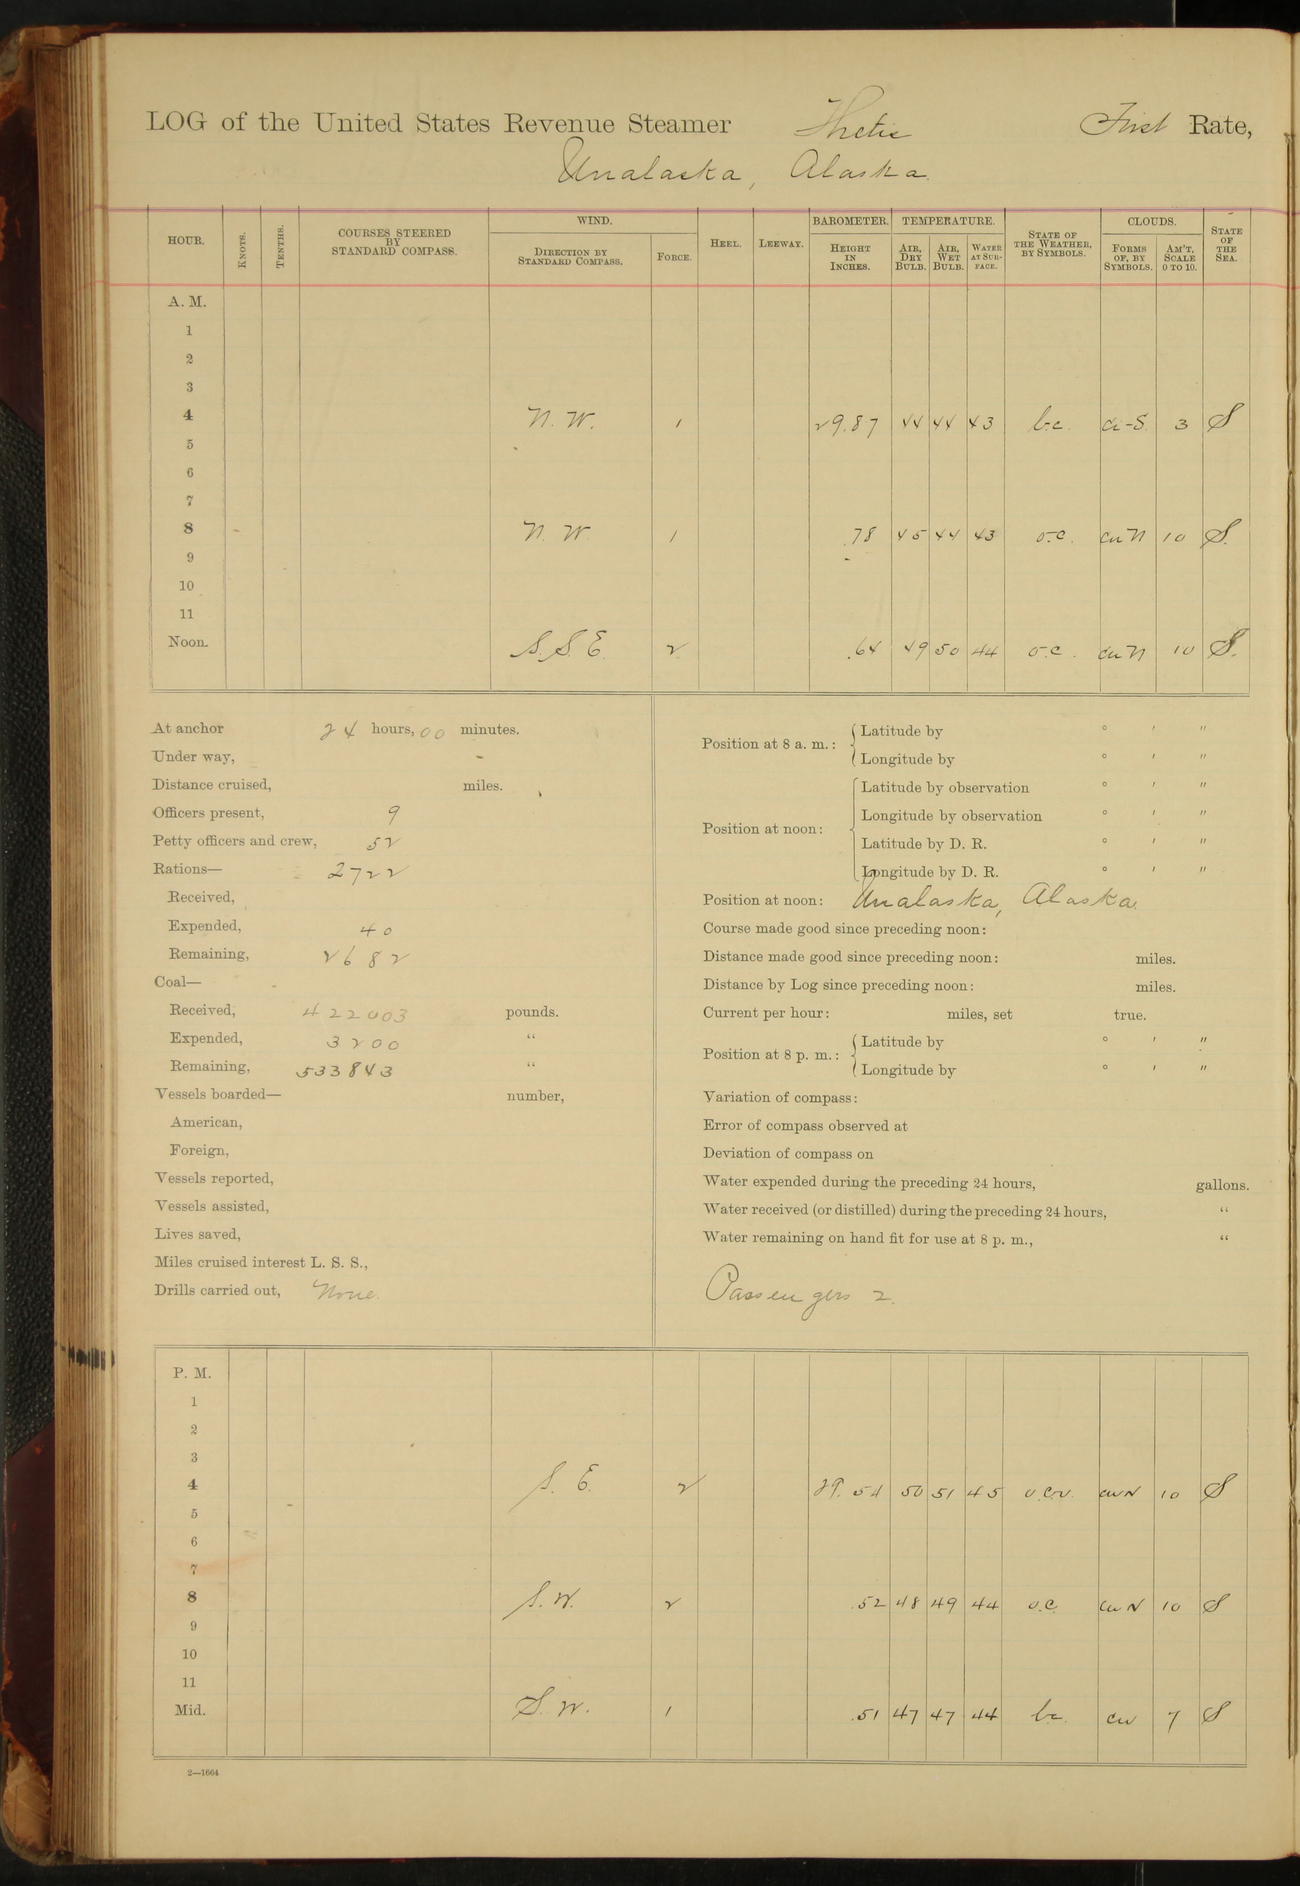 LOG of the United States Revenue Steamer Thetis First Rate,
Unalaska, Alaska.
HOUR. KNOTS. TENTHS. COURSES STEERED BY STANDARD COMPASS. WIND. DIRECTION BY STANDARD COMPASS. FORCE. HEEL. LEEWAY. BAROMETER. HEIGHT IN INCHES. TEMPERATURE. AIR, DRY BULB. AIR, WET BULB. WATER AT SURFACE. STATE OF THE WEATHER, BY SYMBOLS. CLOUDS. FORMS OF, BY SYMBOLS. AM'T, SCALE 0 TO 10. STATE OF THE SEA.
A. M.
1
2
3
4 N. W. 1 29.87 44 44 43 b.c. Ci-S. 3 S
5
6
7
8 N. W. 1 .78 45 44 43 o.c. Cu N 10 S.
9
10
11
Noon. S. S. E. 2 .64 49 50 44 o.c. Cu N 10 S.
At anchor 24 hours, 00 minutes.
Under way,
Distance cruised, miles.
Officers present, 9
Petty officers and crew, 52
Rations— 2722
Received,
Expended, 40
Remaining, 2682
Coal—
Received, 422003 pounds.
Expended, 3200 "
Remaining, 533843 "
Vessels boarded— number,
American,
Foreign,
Vessels reported,
Vessels assisted,
Lives saved,
Miles cruised interest L. S. S.,
Drills carried out, None.
Position at 8 a. m.: Latitude by ° ′ ″
Longitude by ° ′ ″
Position at noon: Latitude by observation ° ′ ″
Longitude by observation ° ′ ″
Latitude by D. R. ° ′ ″
Longitude by D. R. ° ′ ″
Position at noon: Unalaska, Alaska.
Course made good since preceding noon:
Distance made good since preceding noon: miles.
Distance by Log since preceding noon: miles.
Current per hour: miles, set true.
Position at 8 p. m.: Latitude by ° ′ ″
Longitude by ° ′ ″
Variation of compass:
Error of compass observed at
Deviation of compass on
Water expended during the preceding 24 hours, gallons.
Water received (or distilled) during the preceding 24 hours, "
Water remaining on hand fit for use at 8 p. m., "
Passengers 2.
P. M.
1
2
3
4 S. E. 2 29.54 50 51 45 Cu N 10 S
5
6
7
8 S. W. 2 .52 48 49 44 o.c. Cu N 10 S
9
10
11
Mid. S. W. 1 .51 47 47 44 b.c. Cu 7 S
2—1664